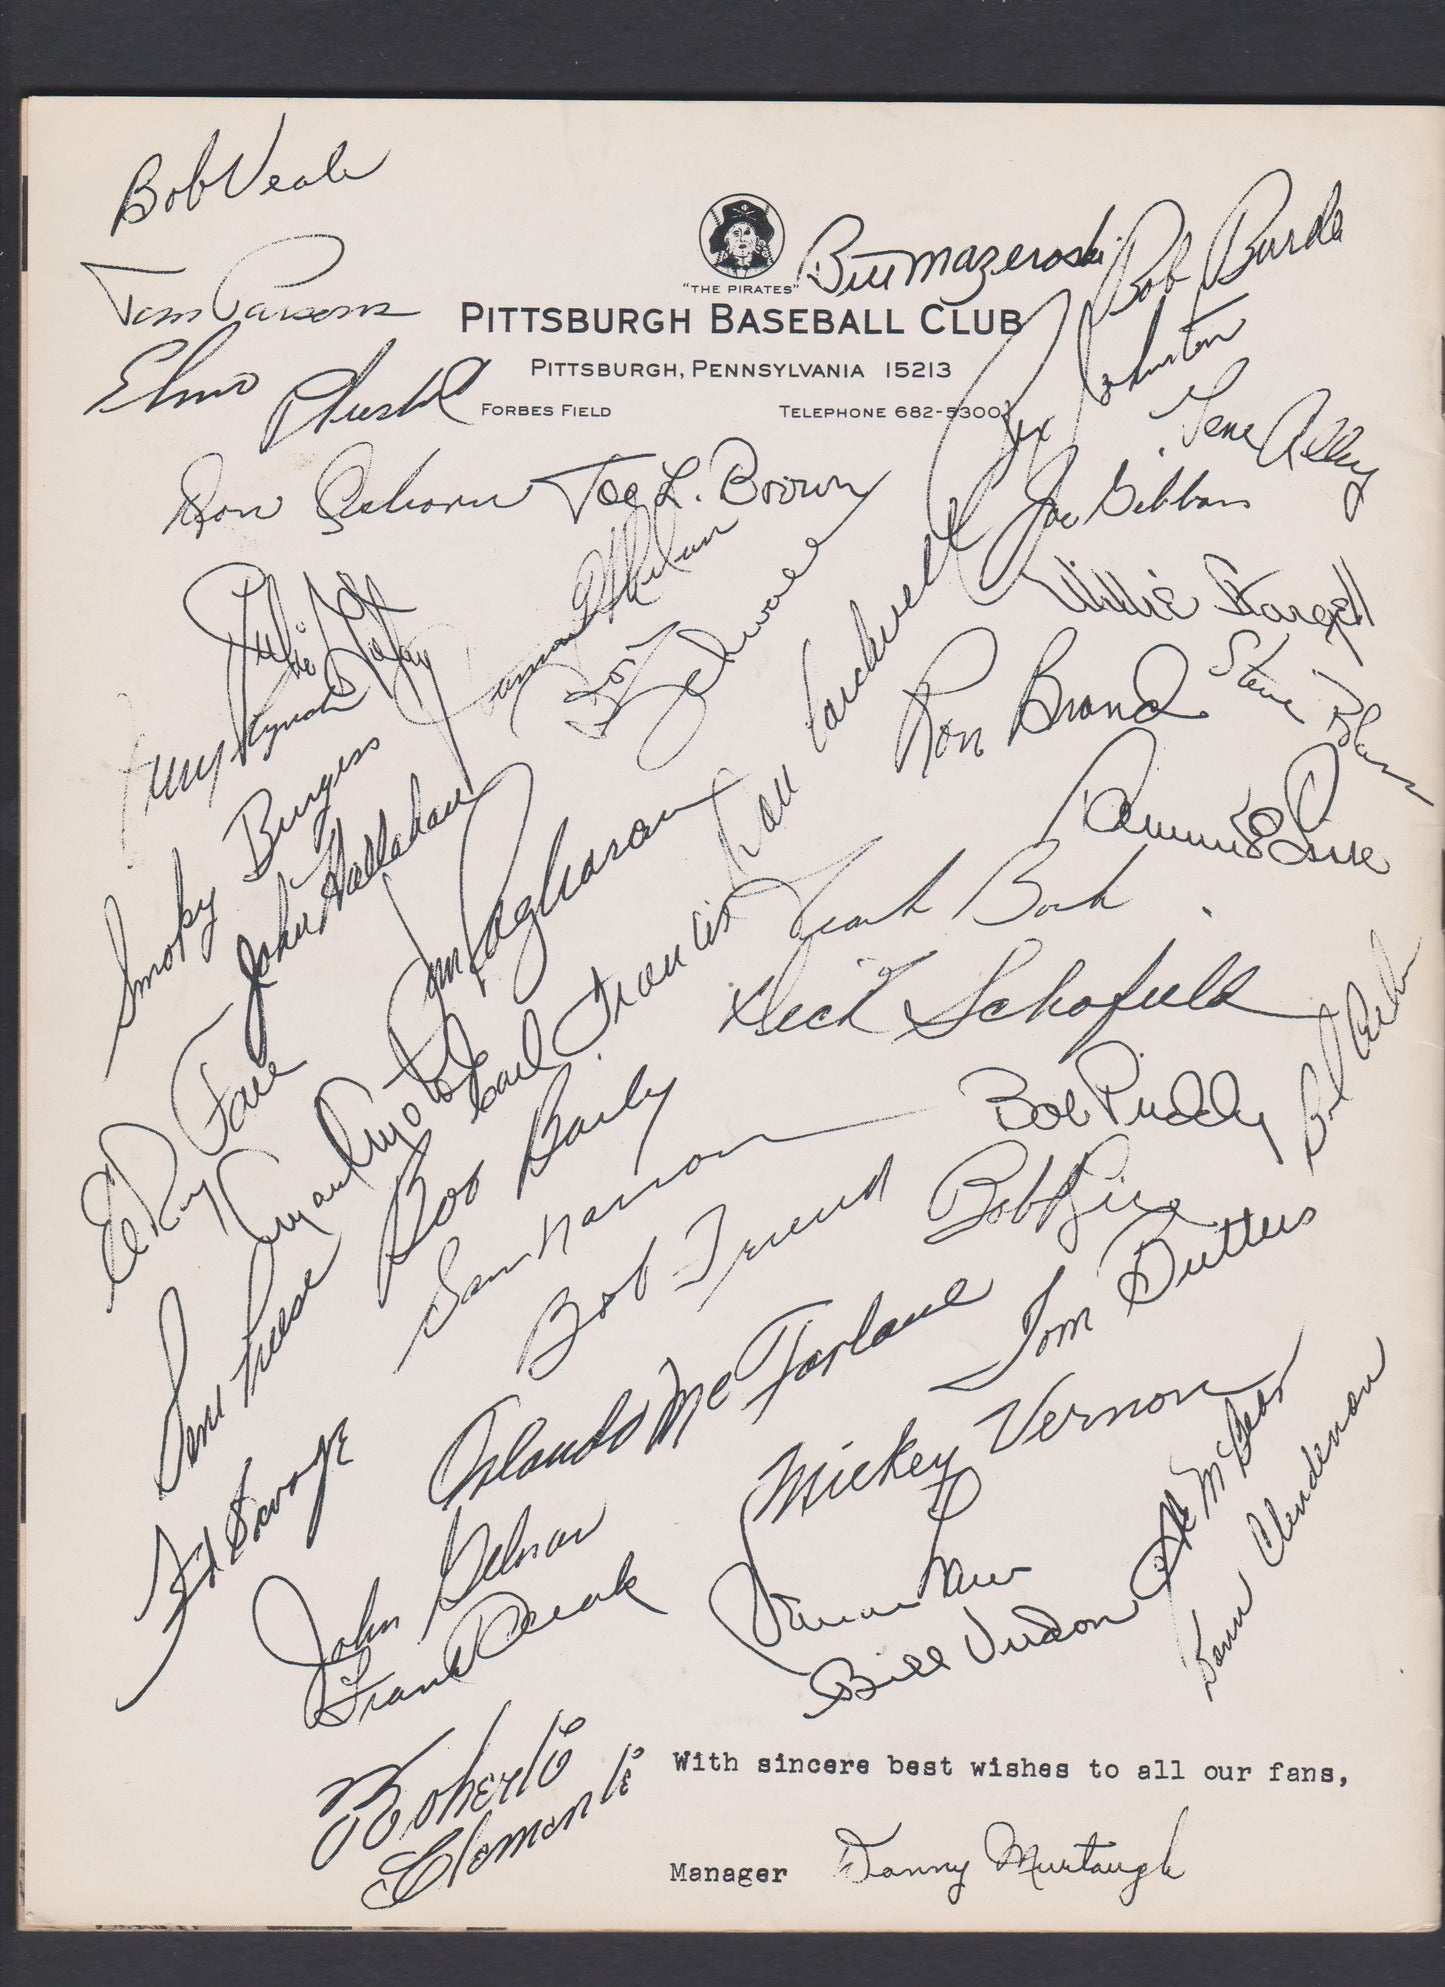 Bob Veale
Tom Parsons
Elmo Plaskett
"THE PIRATES"
PITTSBURGH BASEBALL CLUB
PITTSBURGH, PENNSYLVANIA 15213
FORBES FIELD
TELEPHONE 682-5300
Bill Mazeroski
Bob Burda
Rex Johnston
Gene Alley
Don Osborn
Joe L. Brown
Joe Gibbon
Willie Stargell
Julio Gotay
Don Schwall
Don Cardwell
Ron Brand
Steve Blass
Jerry Lynch
Smoky Burgess
John Hallahan
Jim Pagliaroni
Earl Francis
Frank
Dick Schofield
ElRoy Face
Bob Bailey
Sam Narron
Bob Priddy
Bob Friend
Bob
Gene Freese
Ted Savage
Orlando McFarlane
Tom Butters
Mickey Vernon
Al McBean
Donn Clendenon
John Gelnar
Frank Oceak
Bill Virdon
Roberto Clemente
With sincere best wishes to all our fans,
Manager Danny Murtaugh